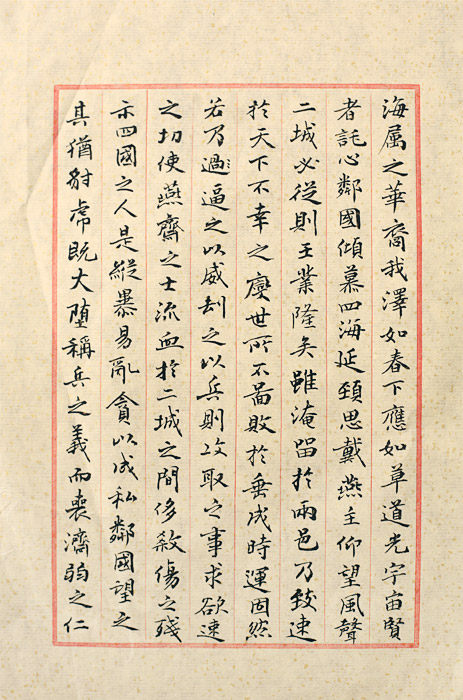 海属之華裔我澤如春下應如草道光宇宙賢
者託心鄰國傾慕四海延頸思戴燕主仰望風聲
二城必從則王業隆矣雖淹留於兩邑乃致速
於天下不幸之變世所不啚敗於垂成時運固然
若乃過逼之以威劫之以兵則攻取之事求欲速
之功使燕齊之士流血於二城之間侈殺傷之殘
示四國之人是縱暴易亂貪以成私鄰國望之
其猶豺虎既大墮稱兵之義而喪濟弱之仁